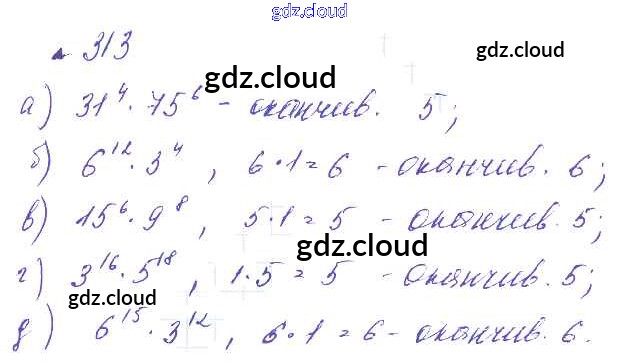 gdz.cloud
313
gdz.cloud
gdz.cloud
а) 31⁴ · 75⁶ - оканчив. 5;
б) 6¹² · 3⁴, 6·1=6 - оканчив. 6;
в) 15⁶ · 9⁸, 5·1=5 - оканчив. 5;
gdz.cloud
г) 3¹⁶ · 5¹⁸, 1·5=5 - оканчив. 5;
gdz.cloud
д) 6¹⁵ · 3¹², 6·1=6 - оканчив. 6.